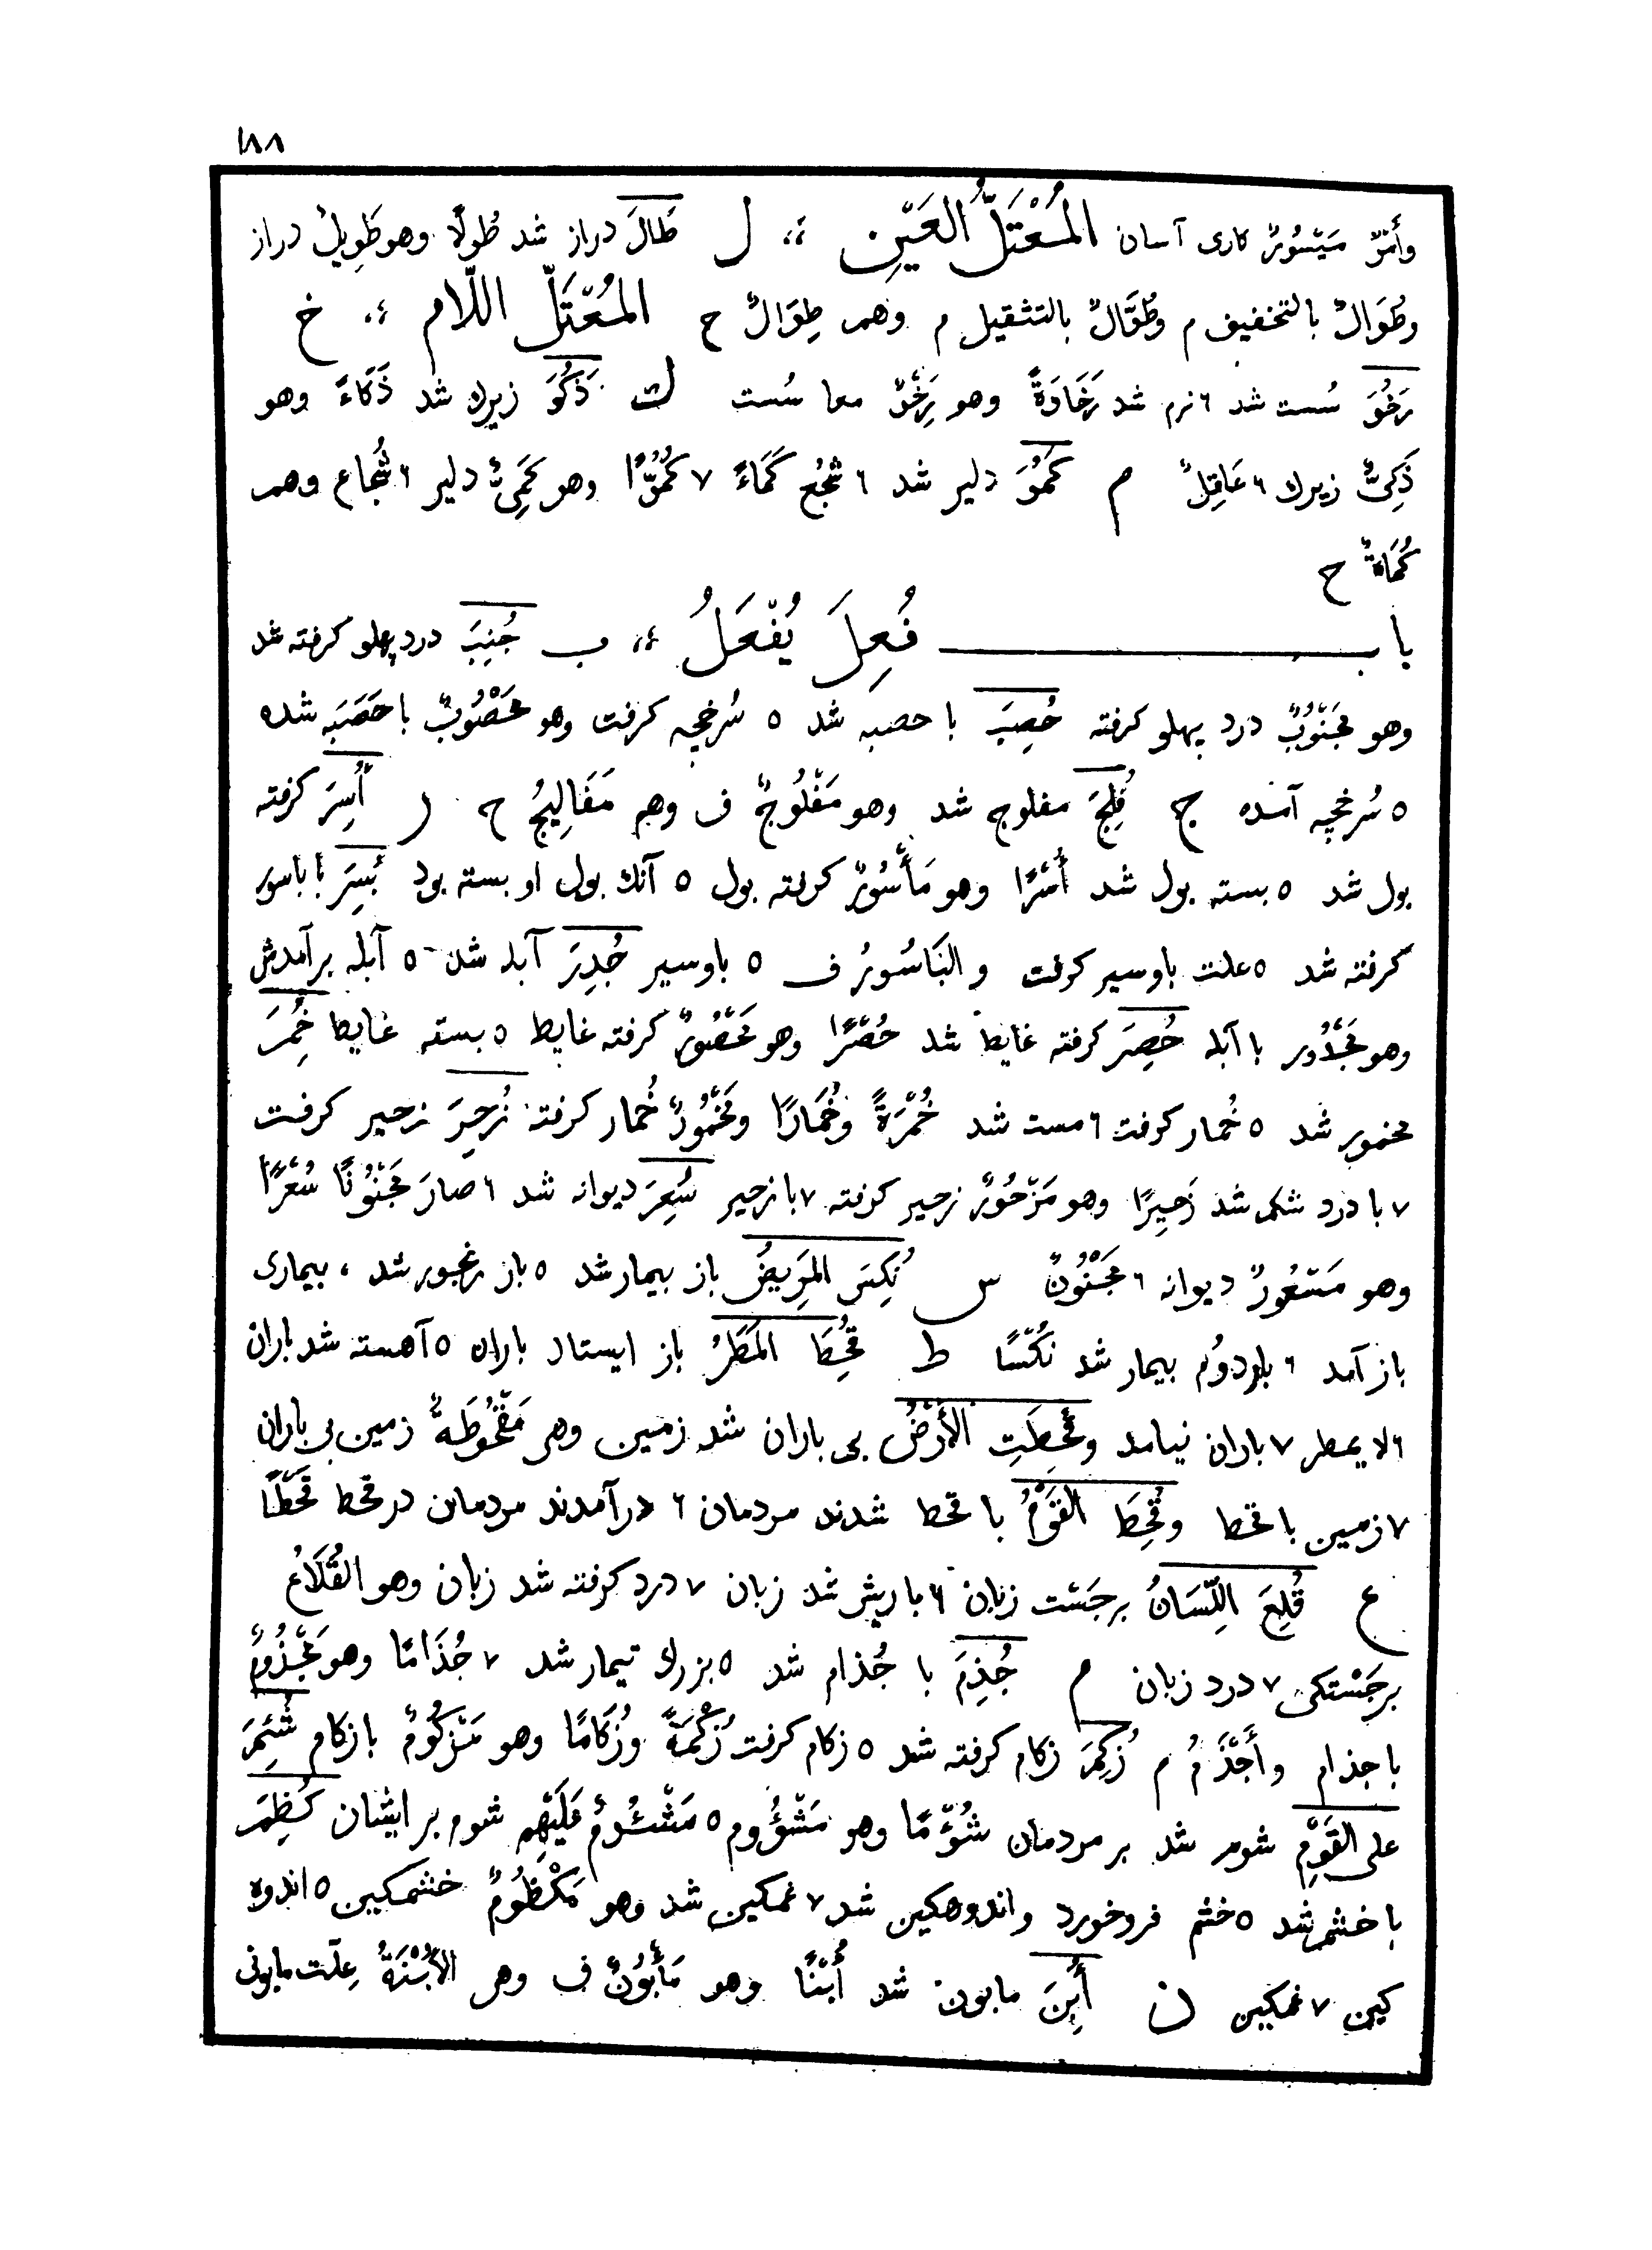 ١٨٨
وأَمْرٌ مَيْسُورٌ کاری آسان المُعْتَلُّ العَيْنِ ؛، ل طَالَ دراز شد طُولًا وهو طَوِيلٌ دراز
وطُوَالٌ بالتخفيف م وطُوَّالٌ بالتثقيل م وهم طِوَالٌ ح المُعْتَلُّ اللّام ؛، خ
رَخُوَ سُست شد ٦ نرم شد رَخَاوَةً وهو رَِخْوٌ معا سُست ك ذَكُوَ زیرك شد ذَكَاءً وهو
ذَكِيٌّ زیرك ٦ عَاقِلٌ م كَمُوَ دلیر شد ٦ شَجُعَ كَمَاءً ٧ كُمُوًّا وهو كَمِيٌّ دلیر ٦ شُجاع وهم
كُمَاةٌ ح
باب فُعِلَ يُفْعَلُ ؛، ب جُنِبَ درد پهلو گرفته شد
وهو مَجْنُوبٌ درد پهلو گرفته حُصِبَ با حصبه شد ٥ سُرخچه گرفت وهو مَحْصُوبٌ با حَصَبَه شده
٥ سُرخچه آمده ج فُلِجَ مفلوج شد وهو مَفْلُوجٌ ف وهم مَفَالِيجُ ح ر أُسِرَ گرفته
بول شد ٥ بسته بول شد أُسْرًا وهو مَأْسُورٌ گرفته بول ٥ آنك بول او بسته بود بُسِرَ با باسور
گرفته شد ٥ علت باوسیر گرفت والبَاسُورُ ف ٥ باوسیر جُدِرَ آبله شد ٥ آبله برآمدش
وهو مَجْدُور با آبله حُصِرَ گرفته غایط شد حُصْرًا وهو مَحْصُورٌ گرفته غایط ٥ بسته غایط خُمِرَ
مخمور شد ٥ خُمار گرفت ٦ مست شد خُمْرَةً وخُمَارًا ومَخْمُورٌ خُمار گرفته زُحِرَ زحیر گرفت
٧ با درد شکم شد زَحِيرًا وهو مَزْحُورٌ زحیر گرفته ٧ با زحیر سُعِرَ دیوانه شد ٦ صارَ مَجْنُونًا سُعْرًا
وهو مَسْعُورٌ دیوانه ٦ مَجْنُونٌ س نُكِسَ المَرِيضُ باز بیمار شد ٥ باز رنجور شد ، بیماری
باز آمد ٦ بار دوُم بیمار شد نُكْسًا ط قُحِطَ المَطَرُ باز ایستاد باران ٥ آهسته شد باران
٦ لا یمطر ٧ باران نیامد وقُحِطَتِ الأَرْضُ بی باران شد زمین وهی مَقْحُوطَةٌ زمین بی باران
٧ زمین با قحط وقُحِطَ القَوْمُ با قحط شدند مردمان ٦ درآمدند مردمان در قحط قَحْطًا
ع قُلِعَ اللِّسَانُ برجَست زبان ٦ با ریش شد زبان ٧ درد گرفته شد زبان وهو القُلَاعُ
برجَستکی ٧ درد زبان م جُذِمَ با جُذام شد ٥ بزرك تیمار شد ٧ جُذَامًا وهو مَجْذُومٌ
با جذام وأَجْذَمُ م زُكِمَ زکام گرفته شد ٥ زکام گرفت زُكْمَةً وزُكَامًا وهو مَزْكُومٌ با زکام شُئِمَ
على القَوْمِ شوم شد بر مردمان شُؤْمًا وهو مَشْؤُوم ٥ مَشْئُومٌ عَلَيْهِم شوم بر ایشان كُظِمَ
با خشم شد ٥ خشم فروخورد واندوهکین شد ٧ غمکین شد وهو مَكْظُومٌ خشمکین ٥ اندوه
کین ٧ غمکین ن أُبِنَ مابون شد أُبْنًا وهو مَأْبُونٌ ف وهی الأُبْنَةُ عِلّت مابونی